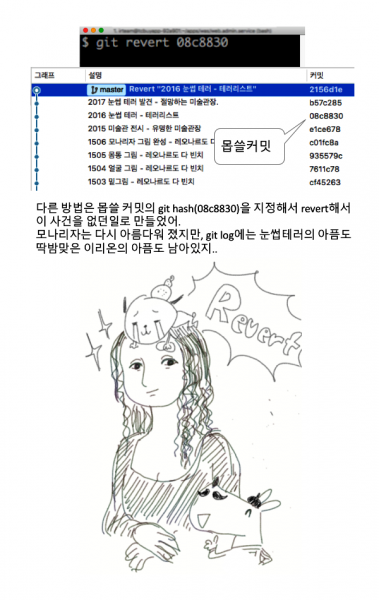 $ git revert 08c8830
그래프 설명 커밋
master Revert "2016 눈썹 테러 - 테러리스트" 2156d1e
2017 눈썹 테러 발견 - 절망하는 미술관장. b57c285
2016 눈썹 테러 - 테러리스트 08c8830
2015 미술관 전시 - 유명한 미술관장 e1ce678
1506 모나리자 그림 완성 - 레오나르도 다 c01fc8a
1505 몸통 그림 - 레오나르도 다 빈치 935579c
1504 얼굴 그림 - 레오나르도 다 빈치 7611c78
1503 밑그림 - 레오나르도 다 빈치 cf45263
몹쓸커밋
다른 방법은 몹쓸 커밋의 git hash(08c8830)을 지정해서 revert해서
이 사건을 없던일로 만들었어.
모나리자는 다시 아름다워 졌지만, git log에는 눈썹테러의 아픔도
딱밤맞은 이리온의 아픔도 남아있지..
Revert